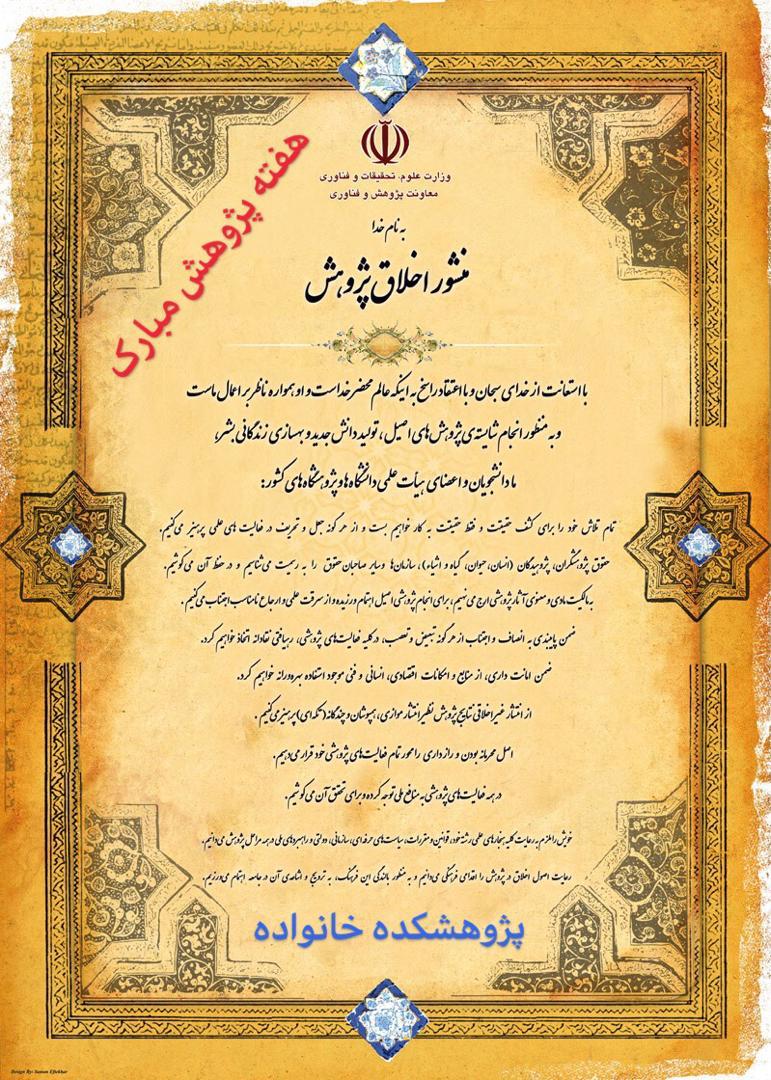 وزارت علوم، تحقیقات و فناوری
معاونت پژوهش و فناوری
هفته پژوهش مبارک
به نام خدا
منشور اخلاق پژوهش
با استعانت از خدای سبحان و با اعتقاد راسخ به اینکه عالم محضر خداست و او همواره ناظر بر اعمال ماست
و به منظور انجام شایسته‌ی پژوهش‌های اصیل، تولید دانش جدید و بهسازی زندگانی بشر،
ما دانشجویان و اعضای هیأت علمی دانشگاه‌ها و پژوهشگاه‌های کشور:
تمام تلاش خود را برای کشف حقیقت و فقط حقیقت به کار خواهیم بست و از هر گونه جعل و تحریف در فعالیت های علمی پرهیز می‌کنیم.
حقوق پژوهشگران، پژوهیدگان (انسان، حیوان، گیاه و اشیاء)، سازمان‌ها و سایر صاحبان حقوق را به رسمیت می‌شناسیم و در حفظ آن می‌کوشیم.
به مالکیت مادی و معنوی آثار پژوهشی ارج می‌نهیم، برای انجام پژوهشی اصیل اهتمام ورزیده و از سرقت علمی و ارجاع نامناسب اجتناب می‌کنیم.
ضمن پایبندی به انصاف و اجتناب از هر گونه تبعیض و تعصب، در کلیه فعالیت‌های پژوهشی، رهیافتی نقادانه اتخاذ خواهیم کرد.
ضمن امانت داری، از منابع و امکانات اقتصادی، انسانی و فنی موجود استفاده بهره‌ورانه خواهیم کرد.
از انتشار غیراخلاقی نتایج پژوهش نظیر انتشار موازی، همپوشان و چندگانه (تکه‌ای) پرهیز می‌کنیم.
اصل محرمانه بودن و رازداری را محور تمام فعالیت‌های پژوهشی خود قرار می‌دهیم.
در همه فعالیت‌های پژوهشی به منافع ملی توجه کرده و برای تحقق آن می‌کوشیم.
خویش را ملزم به رعایت کلیه هنجارهای علمی رشته خود، قوانین و مقررات، سیاست‌های حرفه‌ای، سازمانی، دولتی و راهبردهای ملی در همه مراحل پژوهش می‌دانیم.
رعایت اصول اخلاق در پژوهش را اقدامی فرهنگی می‌دانیم و به منظور بالندگی این فرهنگ، به ترویج و اشاعه‌ی آن در جامعه اهتمام می‌ورزیم.
پژوهشکده خانواده
Design By: Saman Eftekhar